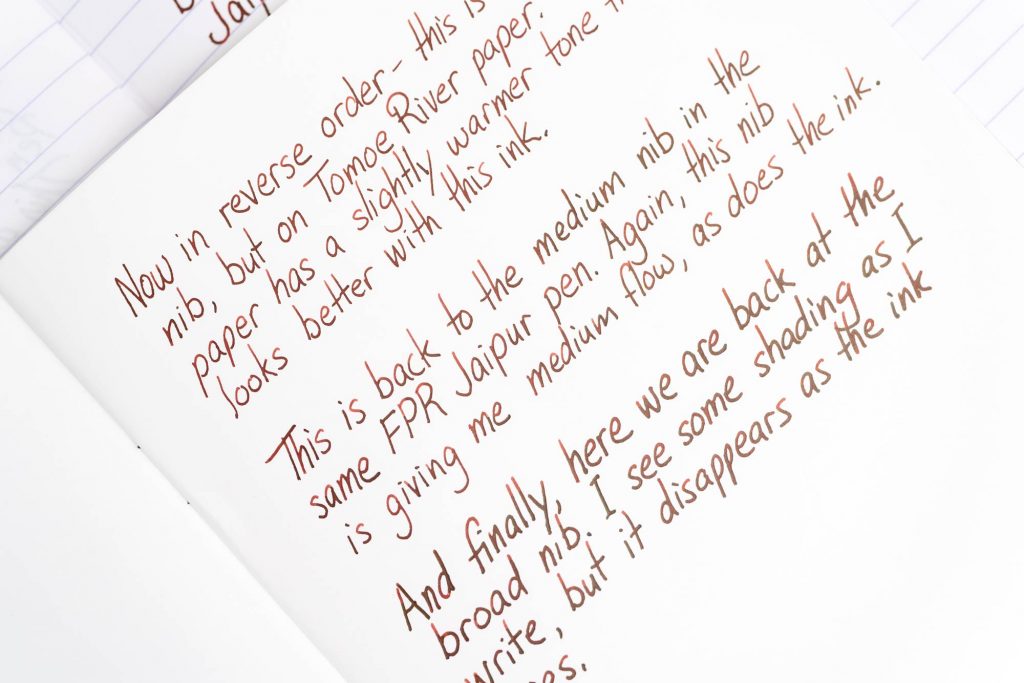 Jaip
Now in reverse order - this is
nib, but on Tomoe River paper.
paper has a slightly warmer tone
looks better with this ink.
This is back to the medium nib in the
same FPR Jaipur pen. Again, this nib
is giving me medium flow, as does the ink.
And finally, here we are back at the
broad nib. I see some shading as I
write, but it disappears as the ink